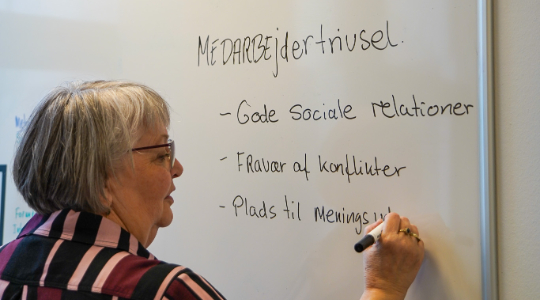 MEDARBEjdertriusel.
- Gode Sociale relationer
- FRavær af konflikter
- Plads til